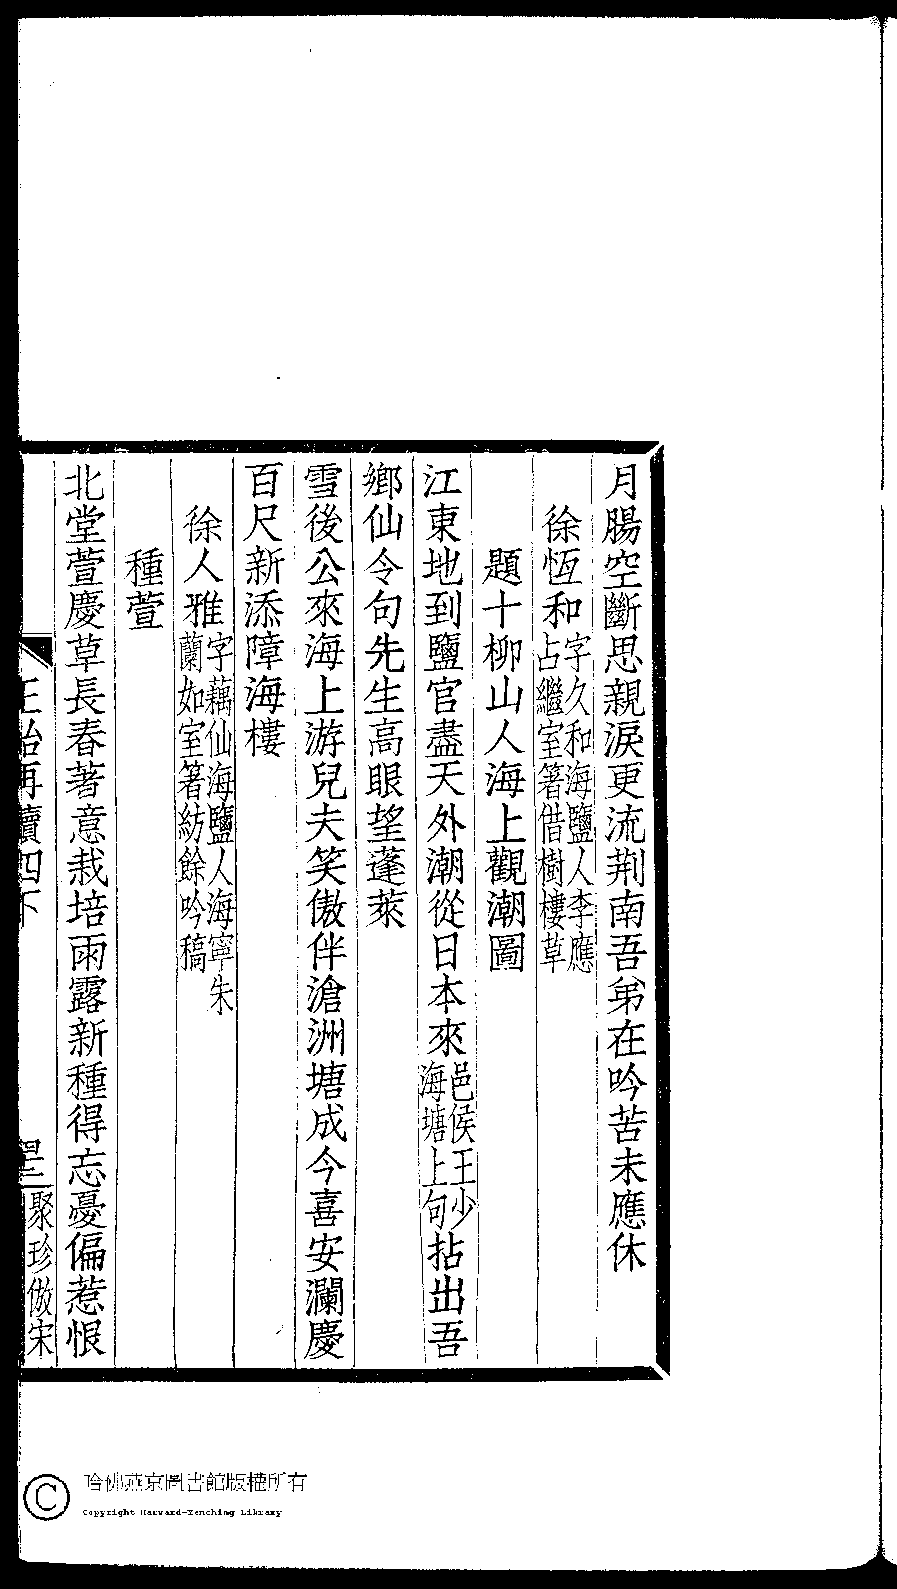 月腸空斷思親淚更流荆南吾弟在吟苦未應休
徐恆和字久和海鹽人李應占繼室箸借樹樓草
題十柳山人海上觀潮圖
江東地到鹽官盡天外潮從日本來邑侯王少海塘上句拈出吾
鄉仙令句先生高眼望蓬萊
雪後公來海上游兒夫笑傲伴滄洲塘成今喜安瀾慶
百尺新添障海樓
徐人雅字藕仙海鹽人海寧朱蘭如室箸紡餘吟稿
種萱
北堂萱慶草長春著意栽培雨露新種得忘憂偏惹恨
再續四下
聚珍倣宋
哈佛燕京圖書館版權所有
Copyright Harvard-Yenching Library